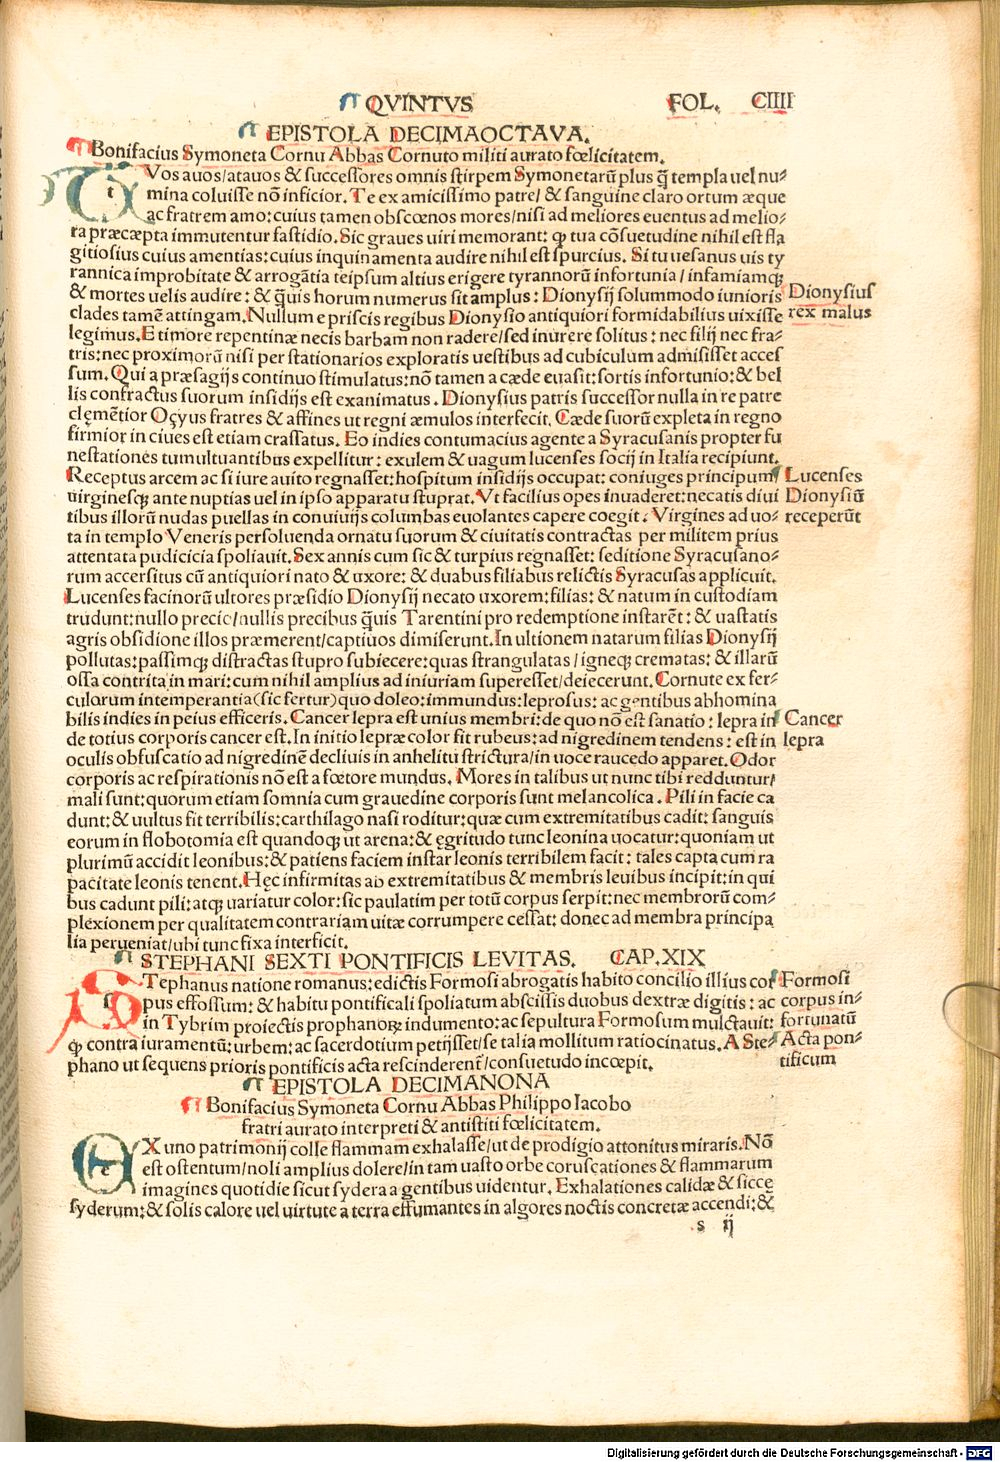 QVINTVS FOL. CIIII
EPISTOLA DECIMAOCTAVA.
Bonifacius Symoneta Cornu Abbas Cornuto militi aurato fœlicitatem.
TVos auos/atauos & successores omnis stirpem Symonetarū plus q̄ templa uel nu⸗
mina coluisse nō inficior. Te ex amicissimo patre/ & sanguine claro ortum æque
ac fratrem amo: cuius tamen obscœnos mores/nisi ad meliores euentus ad melio⸗
ra præcæpta immutentur fastidio. Sic graues uiri memorant: ꝙ tua cōsuetudine nihil est fla
gitiosius cuius amentias: cuius inquinamenta audire nihil est spurcius. Si tu uesanus uis ty
rannica improbitate & arrogātia teipsum altius erigere tyrannorū infortunia / infamiamqȝ
& mortes uelis audire: & q̄uis horum numerus sit amplus: Dionysij solummodo iunioris
clades tamē attingam. Nullum e priscis regibus Dionysio antiquiori formidabilius uixisse
legimus. E timore repentinæ necis barbam non radere/sed inurere solitus: nec filij nec fra⸗
tris: nec proximorū nisi per stationarios exploratis uestibus ad cubiculum admisisset acces
sum. Qui a præsagijs continuo stimulatus: nō tamen a cæde euasit: fortis infortunio: & bel
lis confractus suorum insidijs est exanimatus. Dionysius patris successor nulla in re patre
clęmētior Oçyus fratres & affines ut regni æmulos interfecit. Cæde suorū expleta in regno
firmior in ciues est etiam crassatus. Eo indies contumacius agente a Syracusanis propter fu
nestationes tumultuantibus expellitur: exulem & uagum lucenses socij in Italia recipiunt.
Receptus arcem ac si iure auito regnasset: hospitum insidijs occupat: coniuges principum
uirginesqȝ ante nuptias uel in ipso apparatu stuprat. Vt facilius opes inuaderet: necatis diui
tibus illorū nudas puellas in conuiuijs columbas euolantes capere coegit. Virgines ad uo⸗
ta in templo Veneris persoluenda ornatu suorum & ciuitatis contractas per militem prius
attentata pudicicia spoliauit. Sex annis cum sic & turpius regnasset: seditione Syracusano⸗
rum accersitus cū antiquiori nato & uxore: & duabus filiabus relictis Syracusas applicuit.
Lucenses facinorū ultores præsidio Dionysij necato uxorem: filias: & natum in custodiam
trudunt: nullo precio/nullis precibus q̄uis Tarentini pro redemptione instarēt: & uastatis
agris obsidione illos præmerent/captiuos dimiserunt. In ultionem natarum filias Dionysij
pollutas: passimqȝ distractas stupro subiecere: quas strangulatas / igneqȝ crematas: & illarū
ossa contrita in mari: cum nihil amplius ad iniuriam superesset/deiecerunt. Cornute ex fer⸗
culorum intemperantia (sic fertur) quo doleo: immundus: leprosus: ac gentibus abhomina
bilis indies in peius efficeris. Cancer lepra est unius membri: de quo nō est sanatio: lepra in
de totius corporis cancer est. In initio lepræ color fit rubeus: ad nigredinem tendens: est in
oculis obfuscatio ad nigredinē decliuis in anhelitu strictura/in uoce raucedo apparet. Odor
corporis ac respirationis nō est a fœtore mundus. Mores in talibus ut nunc tibi redduntur/
mali sunt: quorum etiam somnia cum grauedine corporis sunt melancolica. Pili in facie ca
dunt: & uultus fit terribilis: carthilago nasi roditur: quæ cum extremitatibus cadit: sanguis
eorum in flobotomia est quandoqȝ ut arena: & ęgritudo tunc leonina uocatur: quoniam ut
plurimū accidit leonibus: & patiens faciem instar leonis terribilem facit: tales capta cum ra
pacitate leonis tenent. Hęc infirmitas ab extremitatibus & membris leuibus incipit: in qui
bus cadunt pili: atqȝ uariatur color: sic paulatim per totū corpus serpit: nec membrorū com⸗
plexionem per qualitatem contrariam uitæ corrumpere cessat: donec ad membra principa
lia perueniat/ubi tunc fixa interficit.
Dionysius
rex malus
Lucenses
Dionysiū
receperūt
Cancer
lepra
STEPHANI SEXTI PONTIFICIS LEVITAS. CAP.XIX
STephanus natione romanus: edictis Formosi abrogatis habito concilio illius cor
pus effossum: & habitu pontificali spoliatum abscissis duobus dextræ digitis: ac
in Tybrim proiectis prophanoqȝ indumento: ac sepultura Formosum mulctauit:
ꝙ contra iuramentū: urbem: ac sacerdotium petijsset/se talia mollitum ratiocinatus. A Ste⸗
phano ut sequens prioris pontificis acta rescinderent/consuetudo incœpit.
Formosi
corpus in⸗
fortunatū
Acta pon⸗
tificum
EPISTOLA DECIMANONA
Bonifacius Symoneta Cornu Abbas Philippo Iacobo
fratri aurato interpreti & antistiti fœlicitatem.
EX uno patrimonij colle flammam exhalasse/ut de prodigio attonitus miraris. Nō
est ostentum/noli amplius dolere/in tam uasto orbe coruscationes & flammarum
imagines quotidie sicut sydera a gentibus uidentur. Exhalationes calidæ & siccę
syderum: & solis calore uel uirtute a terra effumantes in algores noctis concretæ accendi: &
s ij
Digitalisierung gefördert durch die Deutsche Forschungsgemeinschaft - DFG